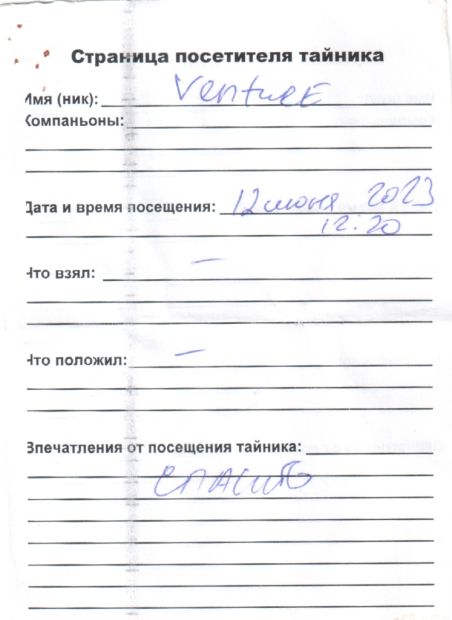 Страница посетителя тайника
Имя (ник): VentureE
Компаньоны:
Дата и время посещения: 12 июня 2023
12:20
Что взял: —
Что положил: —
Впечатления от посещения тайника:
СПАСИБО